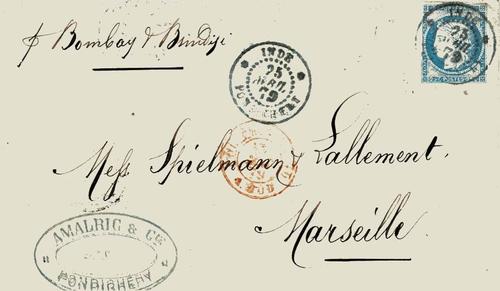 p Bombay & Brindisi
INDE
25
AVRIL
79
PONDICHÉRY
INDE
25
79
Mess Spielmann & Lallement.
Marseille
AMALRIC & Cie
PONDICHÉRY